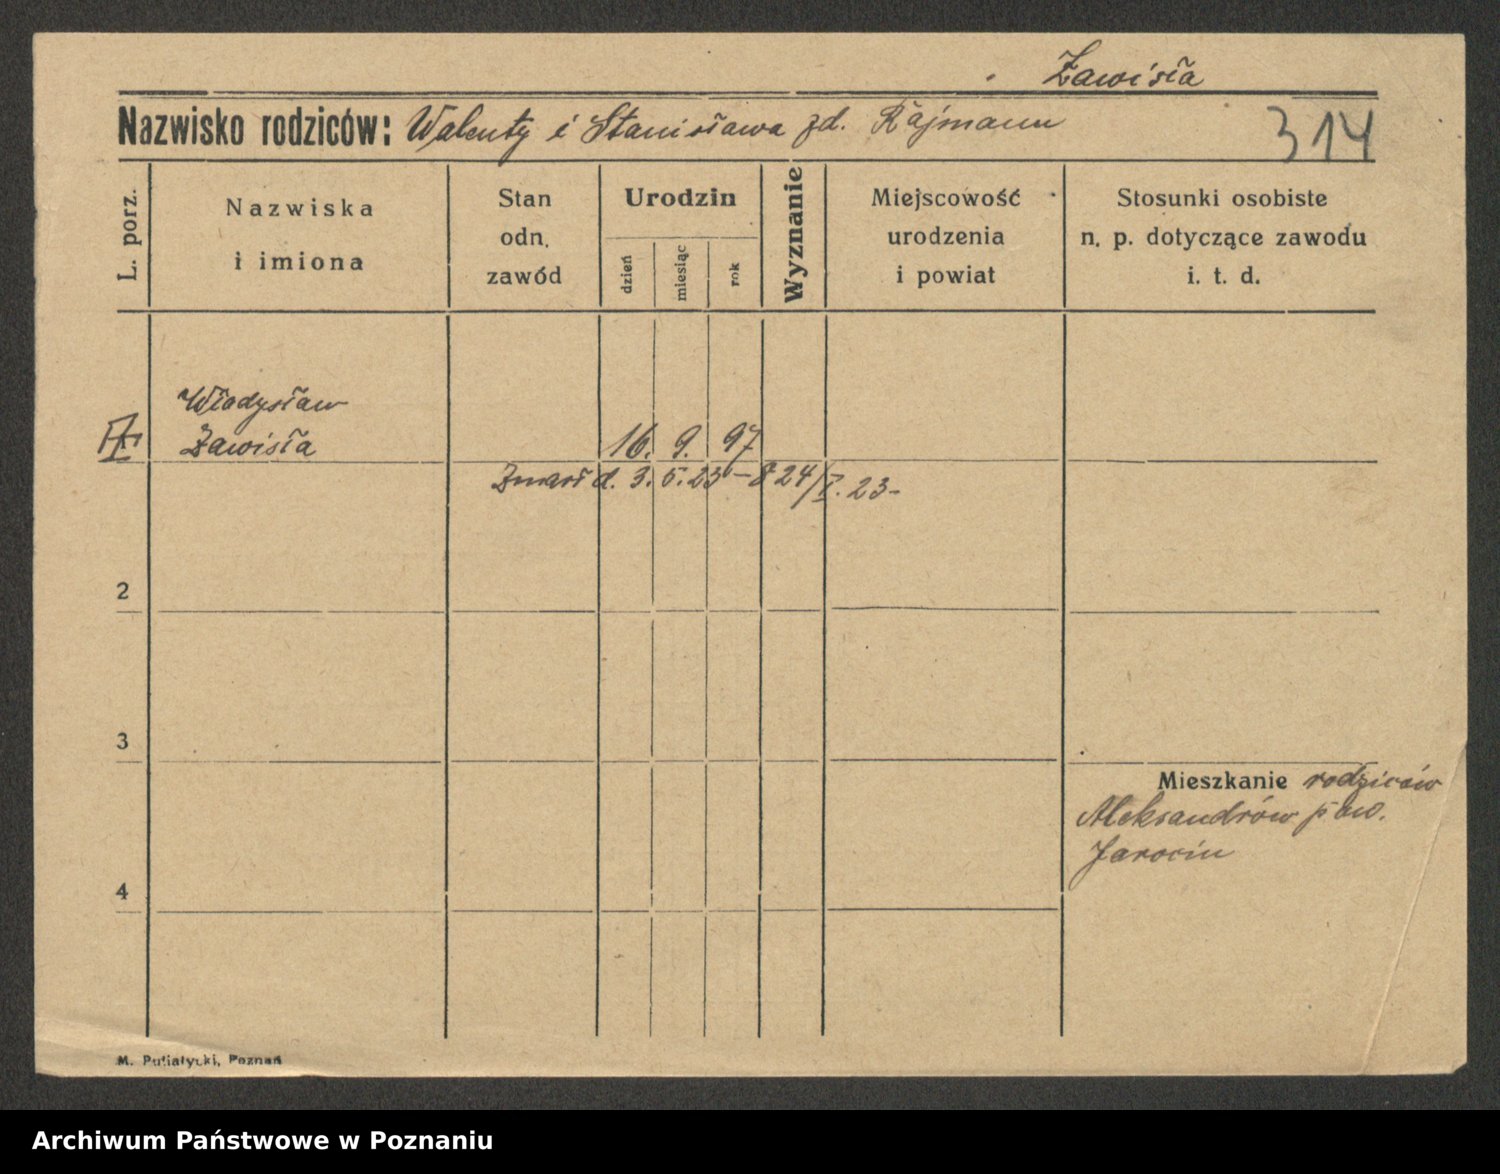 Zawisła
Nazwisko rodziców: Walenty i Stanisława zd. Rajmann
314
L. porz.
Nazwiska
i imiona
Stan
odn.
zawód
Urodzin
dzień
miesiąc
rok
Wyznanie
Miejscowość
urodzenia
i powiat
Stosunki osobiste
n. p. dotyczące zawodu
i. t. d.
Władysław
Zawisła
16. 9. 97
Zmarł d. 3. 5. 23 – 824/I. 23 –
2
3
Mieszkanie rodziców
Aleksandrów pow.
Jarocin
4
M. Putiatycki, Poznań
Archiwum Państwowe w Poznaniu